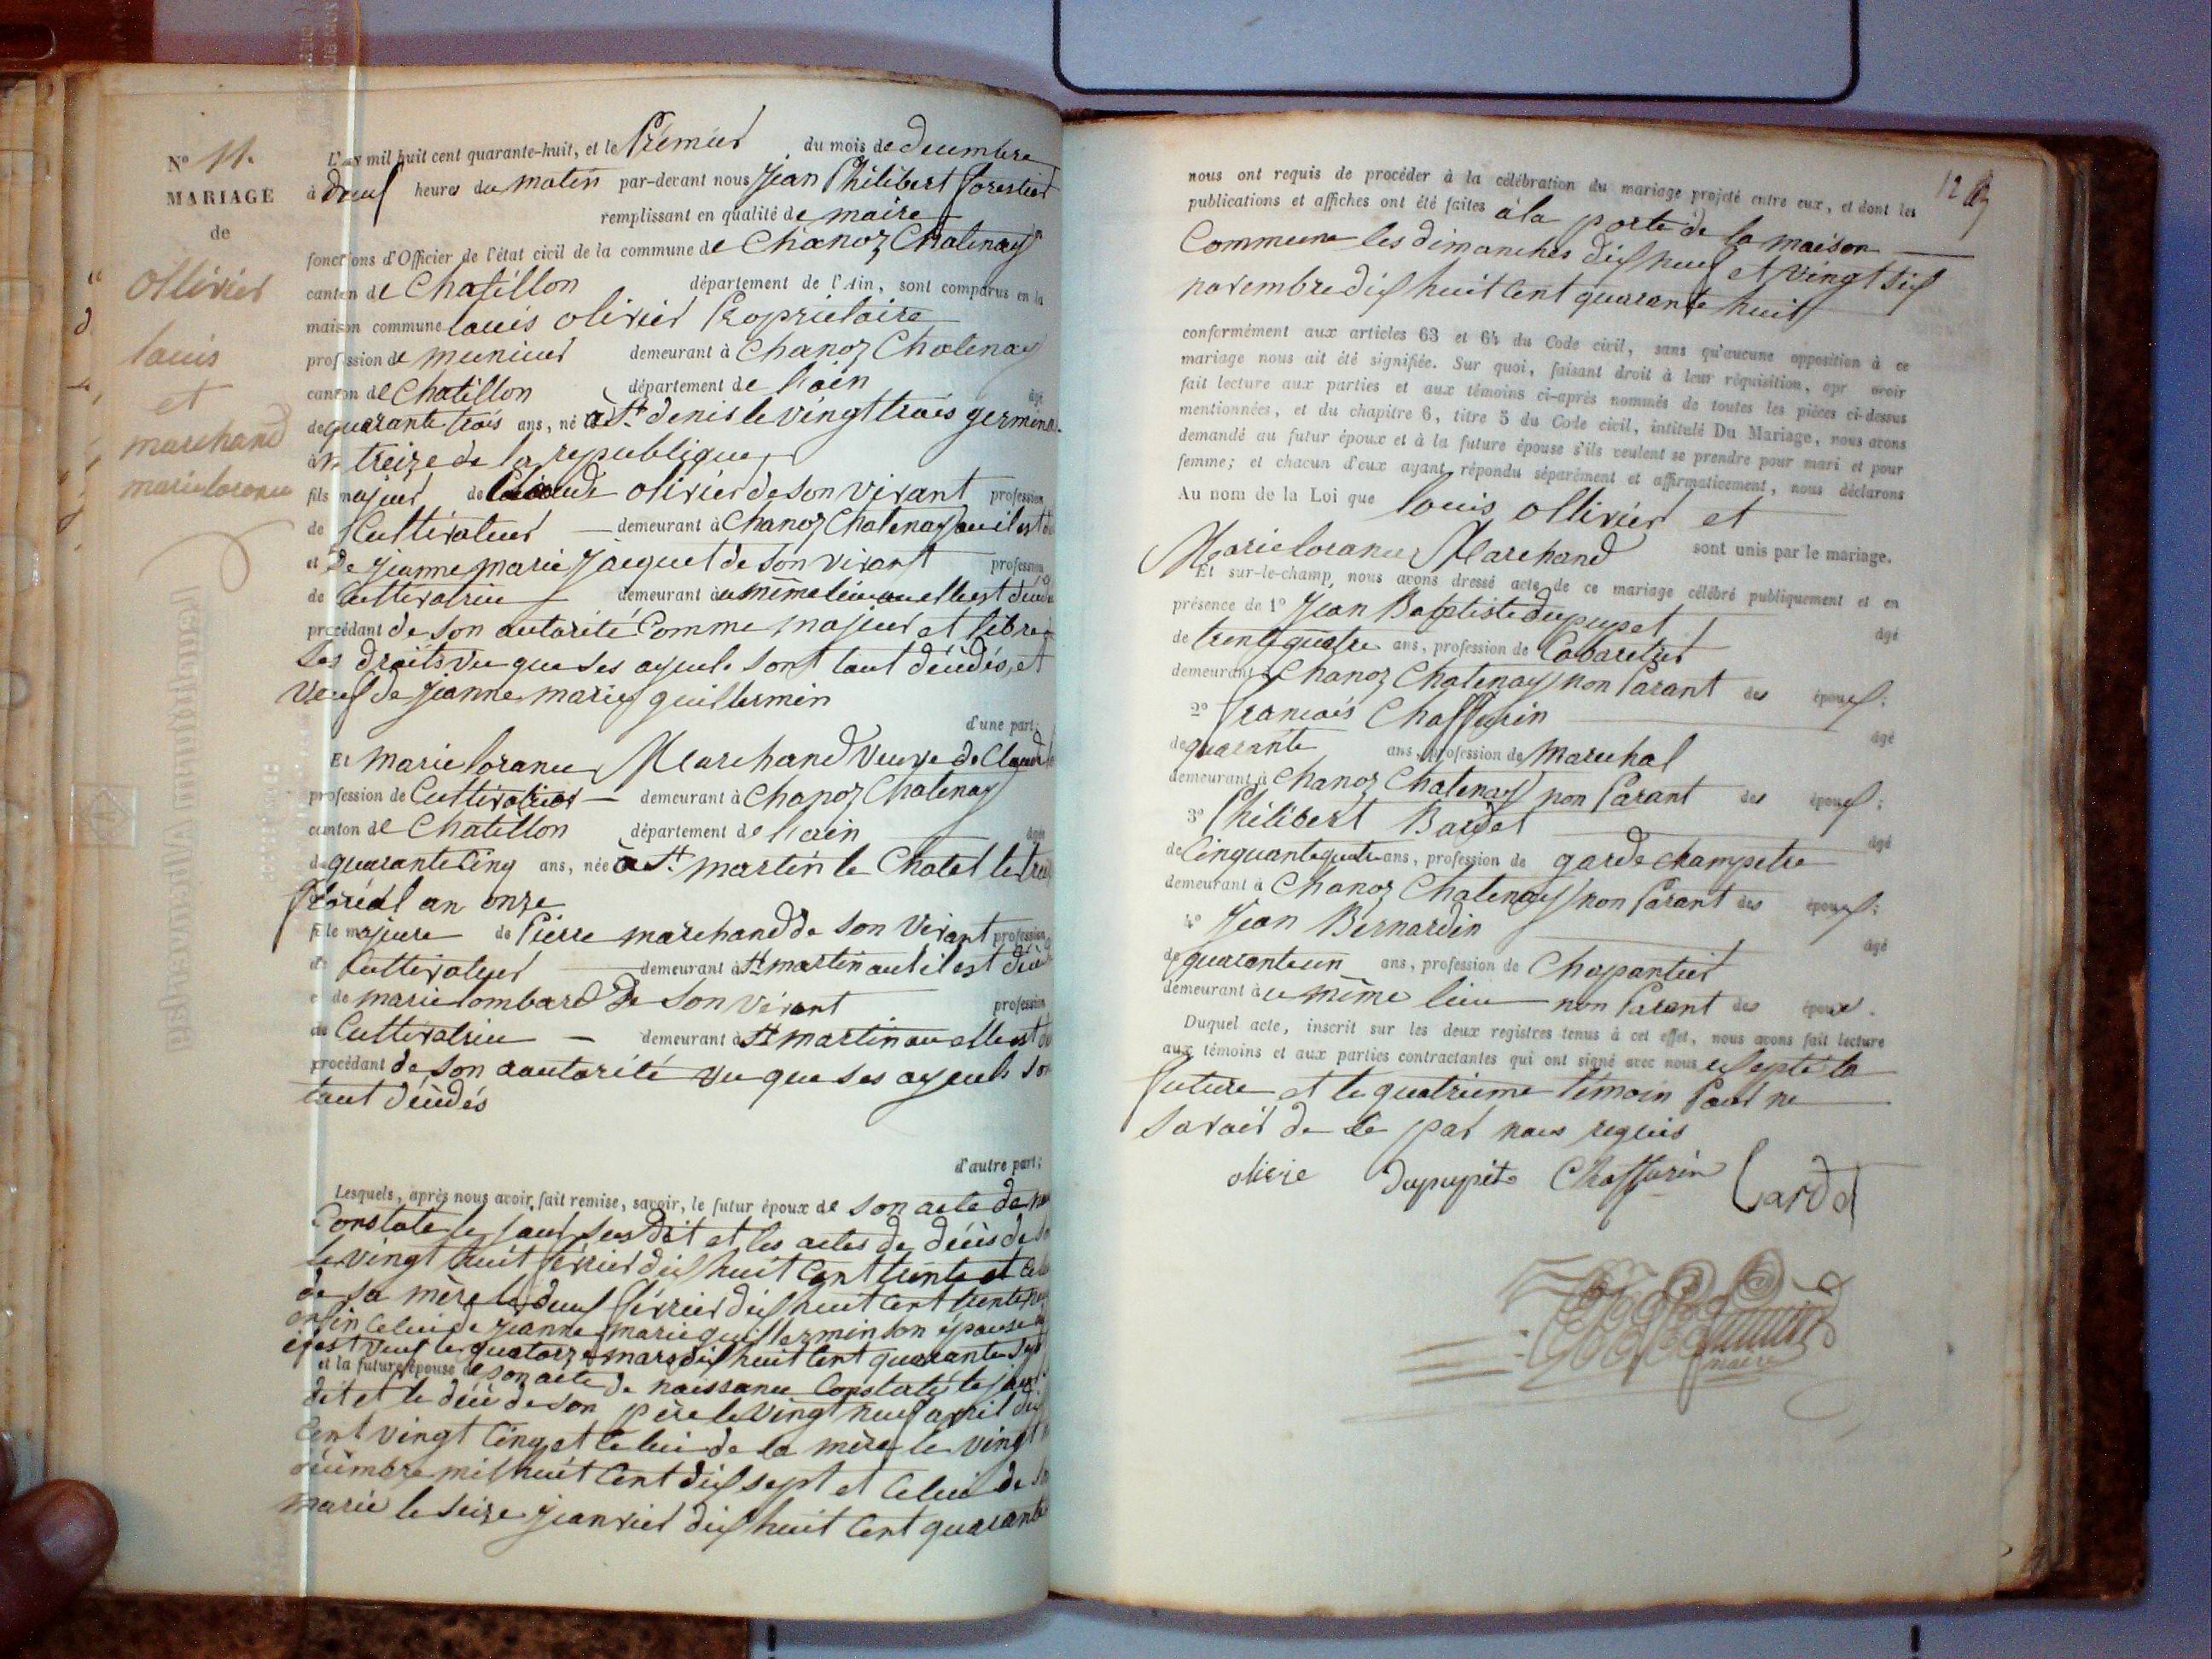 N° 11.
MARIAGE
de
ollivier
louis
et
marchand
marie lorance
L'an mil huit cent quarante-huit, et le Prémier du mois de decembre
à heures du matin par-devant nous Jean Philibert forestier
remplissant en qualité de maire
fonctions d'Officier de l'état civil de la commune de Chanoz Chatenay
canton de Chatillon département de l'Ain, sont comparus en la
maison commune louis olivier Propriétaire
profession de munier demeurant à Chanoz Chatenay
canton de Chatillon département de l'ain âgé
de quarante trois ans, né à St. denis le vingt trois germinal
an treize de la republique
fils majeur de Claude olivier de son vivant profession
de Cultivateur demeurant à Chanoz Chatenay ou il est
et De jeanne marie jacquet de son vivant profession
de Cultivatrice demeurant au même lieu ou elle est
procédant de son autorité Comme majeur et libre
Ses droits vu que ses ayeuls sont tout décédés, et
veuf de jeanne marie guillermin
d'une part;
Et marie lorance Marchand veuve de Claude
profession de Cultivatrice demeurant à Chanoz Chatenay
canton de Chatillon département de l'ain âgée
de quarante Cinq ans, née à St. martin le Chatel le
floréal an onze
fille majeure de Pierre marchand de son vivant profession
de Cultivateur demeurant à St martin ou il est
de marie lombard De son vivant profession
de Cultivatrice demeurant à St martin ou elle est
procédant de son aautorité vu que ses ayeuls
tout décédés
d'autre part;
Lesquels, après nous avoir fait remise, savoir, le futur époux de son acte de
Constaté le jour sus dit et les actes de décès de
le vingt huit février dix huit Cent trente et
de sa mère le deux février dix huit cent trente
enfin Celui de jeanne marie guillermin son épouse
est veuf le quatorze mars dix huit cent quarante
et la future épouse de son acte de naissance Constaté le jour
dit et le décè de son père le vingt neuf avril dix
Cent vingt Cinq et Celui de la mère le vingt
décembre mil huit Cent dix sept et Celui de
marie le seize janvier dix huit Cent quarante
nous ont requis de procéder à la célébration du mariage projeté entre eux, et dont les
publications et affiches ont été faites à la porte de la maison
Commune les dimanches dix neuf et vingt six
novembre dix huit Cent quarante huit
conformément aux articles 63 et 64 du Code civil, sans qu'aucune opposition à ce
mariage nous ait été signifiée. Sur quoi, faisant droit à leur réquisition, apr avoir
fait lecture aux parties et aux témoins ci-après nommés de toutes les pièces ci-dessus
mentionnées, et du chapitre 6, titre 5 du Code civil, intitulé Du Mariage, nous avons
demandé au futur époux et à la future épouse s'ils veulent se prendre pour mari et pour
femme; et chacun d'eux ayant répondu séparément et affirmativement, nous déclarons
Au nom de la Loi que louis ollivier et
Marie lorance Marchand sont unis par le mariage.
Et sur-le-champ nous avons dressé acte de ce mariage célébré publiquement et en
présence de 1° Jean Baptiste dupupet âgé
de trente quatre ans, profession de Cabaretier
demeurant à Chanoz Chatenay non Parant des époux;
2° françois Chaffurin âgé
de quarante ans, profession de Marechal
demeurant à Chanoz Chatenay non Parant des époux;
3° Philibert Bardet âgé
de Cinquante quatre ans, profession de garde champetre
demeurant à Chanoz Chatenay non Parant des époux;
4° Jean Bernardin âgé
de quarante un ans, profession de Chapantier
demeurant à ce même lieu non Parant des époux.
Duquel acte, inscrit sur les deux registres tenus à cet effet, nous avons fait lecture
aux témoins et aux parties contractantes qui ont signé avec nous exepté la
future et le quatrieme témoin Pour ne
savoir de ce par nous requis
olivie dupupet Chaffurin Bardet
maire